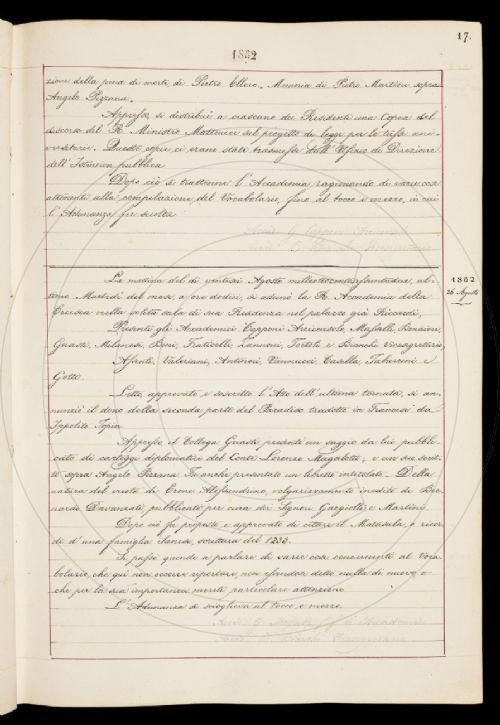 17.
1862
zione della pena di morte, di Pietro Ellero. Memoria di Pietro Martini sopra
Angelo Pezzana.
Appresso, si distribuì a ciascuno dei Residenti una Copia del
discorso del R. Ministro Matteucci sul progetto di legge per le tasse uni-
versitarie. Queste copie ci erano state trasmesse dall'Ufficio di Direzione
dell'Istruzion pubblica.
Dopo ciò si trattenne l'Accademia ragionando di varie cose
attenenti alla compilazione del Vocabolario, fino al tocco e mezzo, in cui
l'Adunanza fu sciolta.
1862
26 Agosto
La mattina del dì ventisei Agosto milleottocentosessantadue, ul-
timo Martedì del mese, a ore dodici, si adunò la R. Accademia della
Crusca nella solita sala di sua Residenza nel palazzo già Riccardi,
Presenti gli Accademici Capponi Arciconsolo, Mastelli, Bencini,
Guasti, Milanesi, Bini, Fraticelli, Zannoni, Tortoli e Bianchi Vicesegretario,
Assenti, Valeriani, Antinori, Vannucci, Casella, Tabarrini e
Gotti.
Letto, approvato e soscritto l'Atto dell'ultima tornata, si an-
nunziò il dono della seconda parte del Paradiso tradotta in Francese da
Ippolito Topin.
Appresso il Collega Guasti presentò un saggio da lui pubbli-
cato di carteggi diplomatici del Conte Lorenzo Magalotti, e uno suo scrit-
to sopra Angelo Pezzana. Furonchi presentato un libretto intitolato - Della
natura del vuoto di Erone Alessandrino, volgarizzamento inedito di Ber-
nardo Davanzati, pubblicato per cura dei Signori Gargiolli e Martini.
Dopo ciò fu proposto e approvato di citare il Mattasalà, o ricor-
di d'una famiglia senese, scrittura del 1233.
Si passò quindi a parlare di varie cose concernenti al Voca-
bolario, che qui non occorre ripetere, non essendosi detto nulla di nuovo o
che per la sua importanza meriti particolare attenzione.
L'Adunanza si scioglieva al tocco e mezzo.